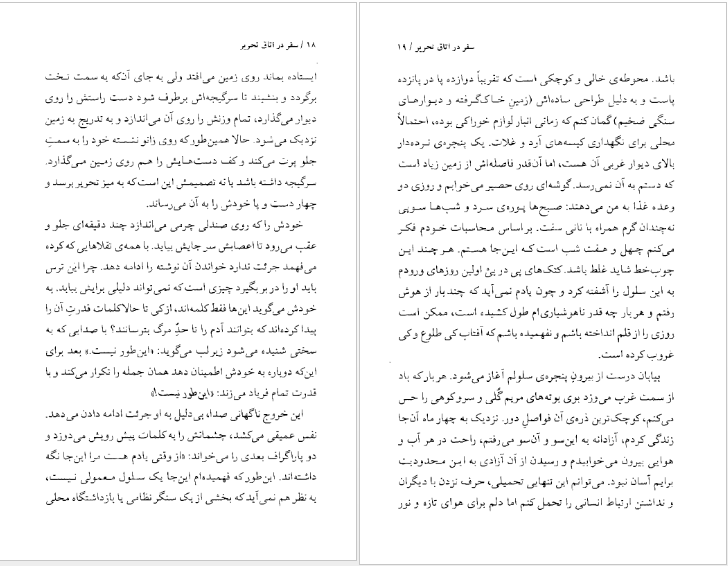 ۱۸ / سفر در اتاق تحریر
ایستاده بماند روی زمین می‌افتد ولی به جای آن‌که به سمت تخت
برگردد و بنشیند تا سرگیجه‌اش برطرف شود دست راستش را روی
دیوار می‌گذارد، تمام وزنش را روی آن می‌اندازد و به تدریج به زمین
نزدیک می‌شود. حالا همین‌طور که روی زانو نشسته خود را به سمتِ
جلو پرت می‌کند و کف دست‌هایش را هم روی زمین می‌گذارد.
سرگیجه داشته باشد یا نه تصمیمش این است که به میز تحریر برسد و
چهار دست و پا خودش را به آن می‌رساند.
خودش را که روی صندلی چرمی می‌اندازد چند دقیقه‌ای جلو و
عقب می‌رود تا اعصابش سر جایش بیاید. با همه‌ی تقلاهایی که کرده
می‌فهمد جرئت ندارد خواندن آن نوشته را ادامه دهد. چرا این ترس
باید او را در بر بگیرد چیزی است که نمی‌تواند دلیلی برایش بیابد. به
خودش می‌گوید این‌ها فقط کلمه‌اند، از کی تا حالا کلمات قدرتِ آن را
پیدا کرده‌اند که بتوانند آدم را تا حدِّ مرگ بترسانند؟ با صدایی که به
سختی شنیده می‌شود زیر لب می‌گوید: «این‌طور نیست.» بعد برای
این‌که دوباره به خودش اطمینان دهد همان جمله را تکرار می‌کند و با
قدرت تمام فریاد می‌زند: «این‌طور نیست!»
این خروج ناگهانی صدا، بی‌دلیل به او جرئت ادامه دادن می‌دهد.
نفس عمیقی می‌کشد، چشمانش را به کلمات پیش رویش می‌دوزد و
دو پاراگراف بعدی را می‌خواند: «از وقتی یادم هست مرا این‌جا نگه
داشته‌اند. این‌طور که فهمیده‌ام این‌جا یک سلول معمولی نیست،
به نظر هم نمی‌آید که بخشی از یک سنگر نظامی یا بازداشتگاه محلی
سفر در اتاق تحریر / ۱۹
باشد. محوطه‌ی خالی و کوچکی است که تقریباً دوازده پا در پانزده
پاست و به دلیل طراحی ساده‌اش (زمینِ خاک‌گرفته و دیوارهای
سنگی ضخیم) گمان کنم که زمانی انبار لوازم خوراکی بوده، احتمالاً
محلی برای نگهداری کیسه‌های آرد و غلات. یک پنجره‌ی نرده‌دار
بالای دیوار غربی آن هست، اما آن‌قدر فاصله‌اش از زمین زیاد است
که دستم به آن نمی‌رسد. گوشه‌ای روی حصیر می‌خوابم و روزی دو
وعده غذا به من می‌دهند: صبح‌ها پوره‌ی سرد و شب‌ها سوپی
نه‌چندان گرم همراه با نانی سفت. بر اساس محاسبات خودم فکر
می‌کنم چهل و هفت شب است که این‌جا هستم. هر چند این
چوب‌خط شاید غلط باشد. کتک‌های پی در پیِ اولین روزهای ورودم
به این سلول را آشفته کرد و چون یادم نمی‌آید که چند بار از هوش
رفتم و هر بار چه قدر ناهوشیاری‌ام طول کشیده است، ممکن است
روزی را از قلم انداخته باشم و نفهمیده باشم که آفتاب کی طلوع و کی
غروب کرده است.
بیابان درست از بیرونِ پنجره‌ی سلولم آغاز می‌شود. هر بار که باد
از سمت غرب می‌وزد بوی بوته‌های مریم گُلی و سروکوهی را حس
می‌کنم، کوچک‌ترین ذره‌ی آن فواصلِ دور. نزدیک به چهار ماه آن‌جا
زندگی کردم، آزادانه به این‌سو و آن‌سو می‌رفتم، راحت در هر آب و
هوایی بیرون می‌خوابیدم و رسیدن از آن آزادی به این محدودیت
برایم آسان نبود. می‌توانم این تنهایی تحمیلی، حرف نزدن با دیگران
و نداشتن ارتباط انسانی را تحمل کنم اما دلم برای هوای تازه و نور